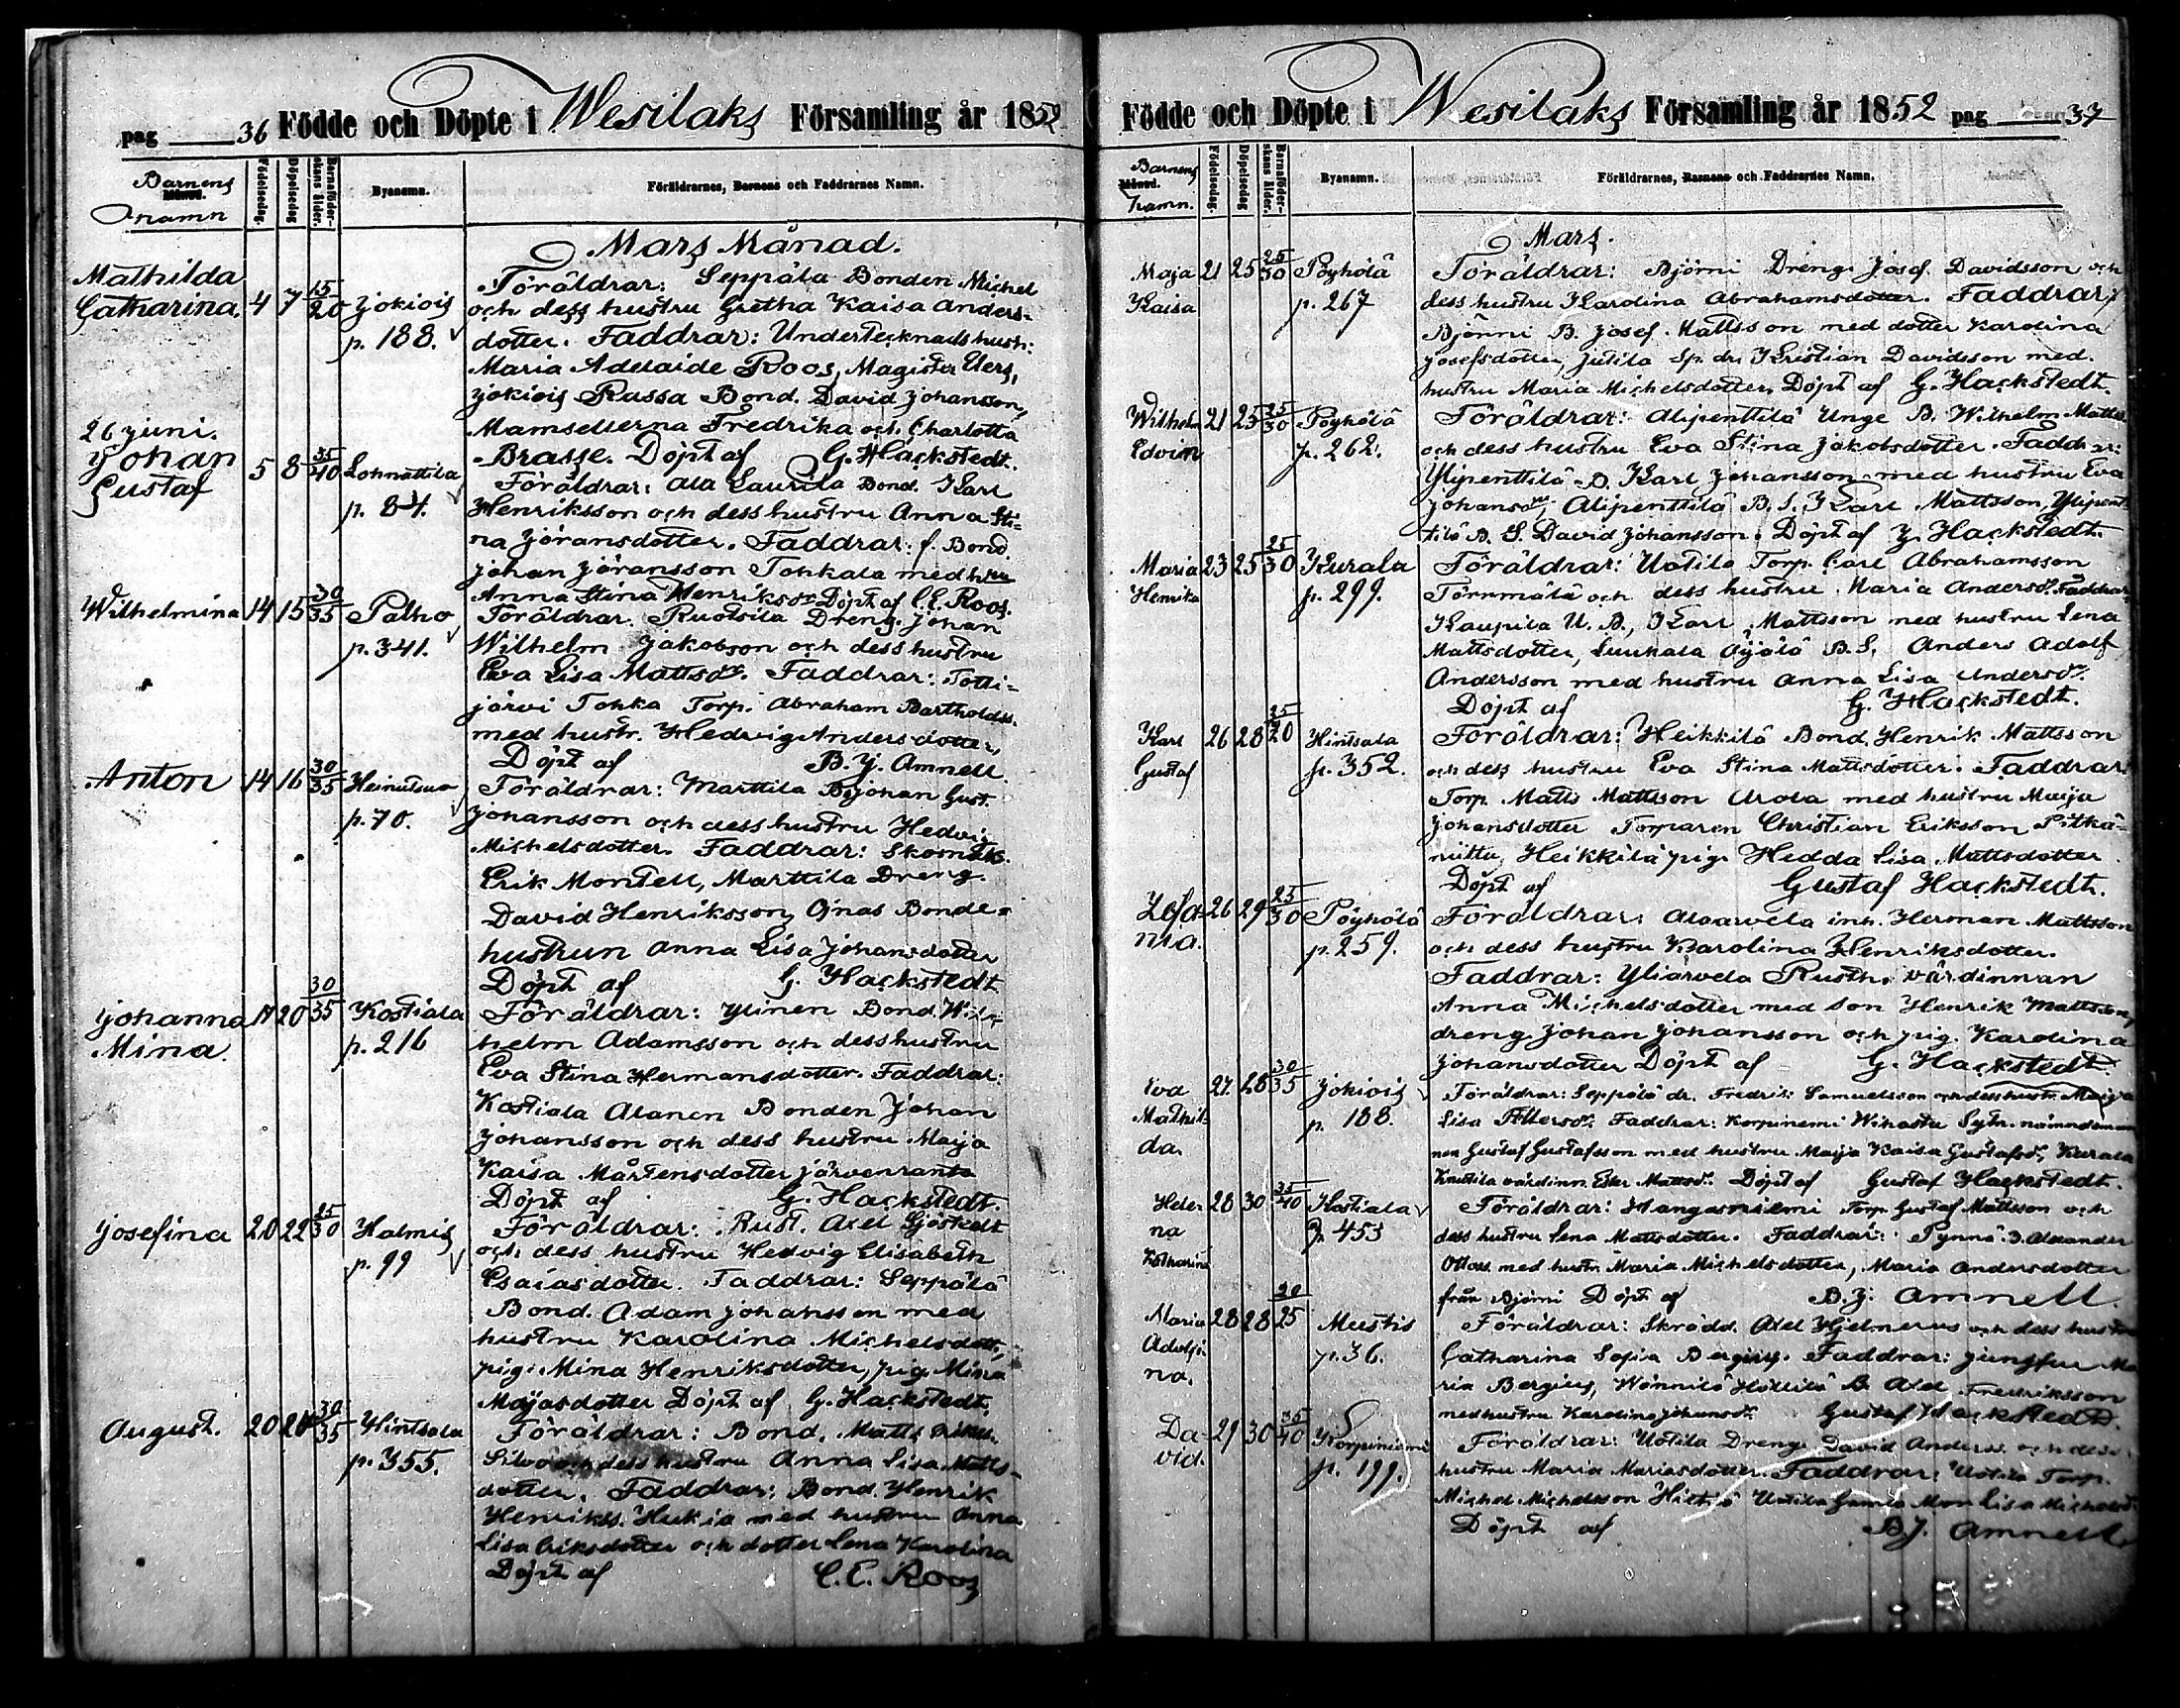 pag 36 Födde och Döpte i Wesilaks Församling år 1852
Barnens namn
Månad.
Födelsedag.
Döpelsedag
Barnaföder-
skans ålder.
Byanamn.
Föräldrarnes, Barnens och Faddrarnes Namn.
Mars Månad.
Mathilda
Catharina, 4 7 15/20 Jokiois
p. 188.
Föräldrar: Seppälä Bonden Michel
och dess hustru Gretha Kaisa Anders-
dotter. Faddrar: Undertecknads hustr:
Maria Adelaide Roos, Magister
Jokiois Rassa Bond. David Johansson,
Mamsellerna Fredrika och Charlotta
Brasse. Döpt af G. Hackstedt.
26 juni.
Johan
Gustaf 5 8 35/40 Lohnottila
p. 84.
Föräldrar: Ala Laurila Bond. Karl
Henriksson och dess hustru Anna Sti-
na Jöransdotter. Faddrar: f. Bond.
Johan Jöransson Tohkala med hru
Anna Stina Henriksdr Döpt af C. E. Roos.
Wilhelmina 14 15 30/35 Palho
p. 341.
Föräldrar. Ruotsila Dreng. Johan
Wilhelm Jakobson och dess hustru
Eva Lisa Mattsdr. Faddrar: Totti-
järvi Tohka Torp. Abraham Bartholdss.
med hustr. Hedvig Andersdotter,
Döpt af B. J. Amnell.
Anton 14 16 30/35 Heinusuo
p. 70.
Föräldrar: Marttila B. Johan Gust.
Johansson och dess hustru Hedvig
Michelsdotter. Faddrar: Skomak.
Erik Montell, Marttila Dreng.
David Henriksson, Ojnas Bonde-
hustrun Anna Lisa Johansdotter
Döpt af G. Hackstedt
Johanna
Mina. 17 20 30/35 Kostiala
p. 216
Föräldrar: Ylinen Bond. Wil-
helm Adamsson och dess hustru
Eva Stina Hermansdotter. Faddrar:
Kostiala Alanen Bonden Johan
Johansson och dess hustru Maija
Kaisa Mårtensdotter Järvenranta
Döpt af G. Hackstedt.
Josefina 20 22 25/30 Halmis
p. 99
Föräldrar: Rust. Axel Sjöstedt
och dess hustru Hedvig Elisabeth
Esaiasdotter. Faddrar: Seppälä
Bond. Adam Johansson med
hustru Karolina Michelsdott,
pig. Mina Henriksdotter, pig. Mina
Majasdotter Döpt af G. Hackstedt.
August. 20 24 30/35 Hintsala
p. 355.
Föräldrar: Bond. Matts
och dess hustru Anna Lisa Matts-
dotter. Faddrar: Bond. Henrik
Henrikss. Hukia med hustru Anna
Lisa Eriksdotter och dotter Lena Karolina
Döpt af C. E. Roos
Födde och Döpte i Wesilaks Församling år 1852 pag 37
Barnens namn.
Månad.
Födelsedag.
Döpelsedag
Barnaföder-
skans ålder.
Byanamn.
Föräldrarnes, Barnens och Faddrarnes Namn.
Mars.
Maja
Kaisa 21 25 25/30 Pöyhölä
p. 267
Föräldrar: Björni Dreng. Josef. Davidsson och
dess hustru Karolina Abrahamsdotter. Faddrar:
Björni B. Josef. Mattsson med dotter Karolina
Josefsdotter, Jutila Sp. dr. Kristian Davidsson med.
hustru Maria Michelsdotter, Döpt af G. Hackstedt.
Wilhelm
Edvin 21 25 25/30 Pöyhölä
p. 262.
Föräldrar: Alipenttilä Unge B. Wilhelm Matts.
och dess hustru Eva Stina Jakobsdotter. Faddrar:
Ylipenttilä B. Karl Johansson med hustru Eva
Johansdr, Alipenttilä B. S. Karl Mattsson, Ylipent
tilä B. S. David Johansson. Döpt af G. Hackstedt.
Maria
Henrika 23 25 25/30 Kurala
p. 299.
Föräldrar: Uotila Torp. Carl Abrahamsson
Törnmälä och dess hustru Maria Andersdr. Faddrar:
Kaupila U. B., Karl Mattsson med hustru Lena
Mattsdotter, Luukala Äijälä B. S. Anders Adolf
Andersson med hustru Anna Lisa Andersdr.
Döpt af G. Hackstedt.
Karl
Gustaf 26 28 20 Hintsala
p. 352.
Föräldrar: Heikkilä Bond. Henrik Mattsson
och dess hustru Eva Stina Mattsdotter. Faddrar:
Torp. Matts Mattsson Arola med hustru Maija
Johansdotter Torparen Christian Eriksson Pitkä-
niitty, Heikkilä pig. Hedda Lisa Mattsdotter.
Döpt af Gustaf Hackstedt.
26 29 25/30 Pöyhölä
p. 259.
Föräldrar: Alaarvela inh. Herman Mattsson
och dess hustru Karolina Henriksdotter.
Faddrar: Yliarvela Rusth. värdinnan
Anna Michelsdotter med son Henrik Mattsson,
dreng Johan Johansson och pig. Karolina
Johansdotter Döpt af G. Hackstedt.
Eva
Mathil-
da. 27. 28 30/35 Jokiois
p. 188.
Föräldrar: Seppälä dr. Fredrik Samuelsson och dess hustr. Maija
Lisa Faddrar: Korpinemi Wikastu Sytn. nämndeman
nen Gustaf Gustafsson med hustru Maija Kaisa Gustafsdr, Kurala
Knuttila värdinn. Ester Mattsdr. Döpt af Gustaf Hackstedt.
Hele-
na
Katharina 28 30 35/40 Kostiala
p. 453
Föräldrar: Hangasniemi Torp. Gustaf Mattsson och
dess hustru Lena Mattsdotter. Faddrar: Pynnä B. Alexander
Ottoss. med hustr. Maria Michelsdotter, Maria Andersdotter
från Björni Döpt af B. J. Amnell.
Maria
Adolfi-
na. 28 28 20/25 Mustis
p. 36.
Föräldrar: Skrädd. Axel Hjelmerus och dess hustru
Catharina Sofia Bergius. Faddrar: Jungfru Ma
ria Bergius, Wännilä Höltilä B. Axel Fredriksson
med hustru Karolina Johansdr. Gustaf Hackstedt.
Da-
vid. 29 30 35/40 Korpiniemi
p. 199.
Föräldrar: Uotila Dreng. David Anderss. och dess
hustru Maria Mariasdotter. Faddrar: Uotila Torp.
Michel Michelsson Uotila Gamla Mor Lisa Michelsd.
Döpt af B. J. Amnell.